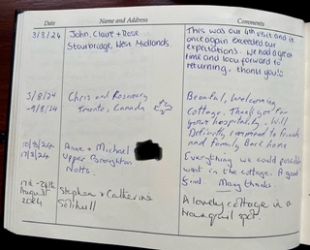 Date Name and Address Comments
3/8/24 John, Clare + Rose
Stourbridge, West Midlands
This was our 4th visit and it
once again exceeded our
expectations. We had a great
time and look forward to
returning. thank you!!
5/8/24
-9/8/24
Chris and Rosemary
Toronto, Canada
Beautiful, welcoming
cottage. Thank you for
your hospitality. Will
Definitely recommend to friends
and family Back home
10/8/24
17/8/24
Anne + Michael
Upper Broughton
Notts.
Everything we could possibly
want in the cottage. A good
find. Many thanks.
17th - 24th
August
2024
Stephen + Catherine
Solihull
A lovely cottage in a
tranquil spot.